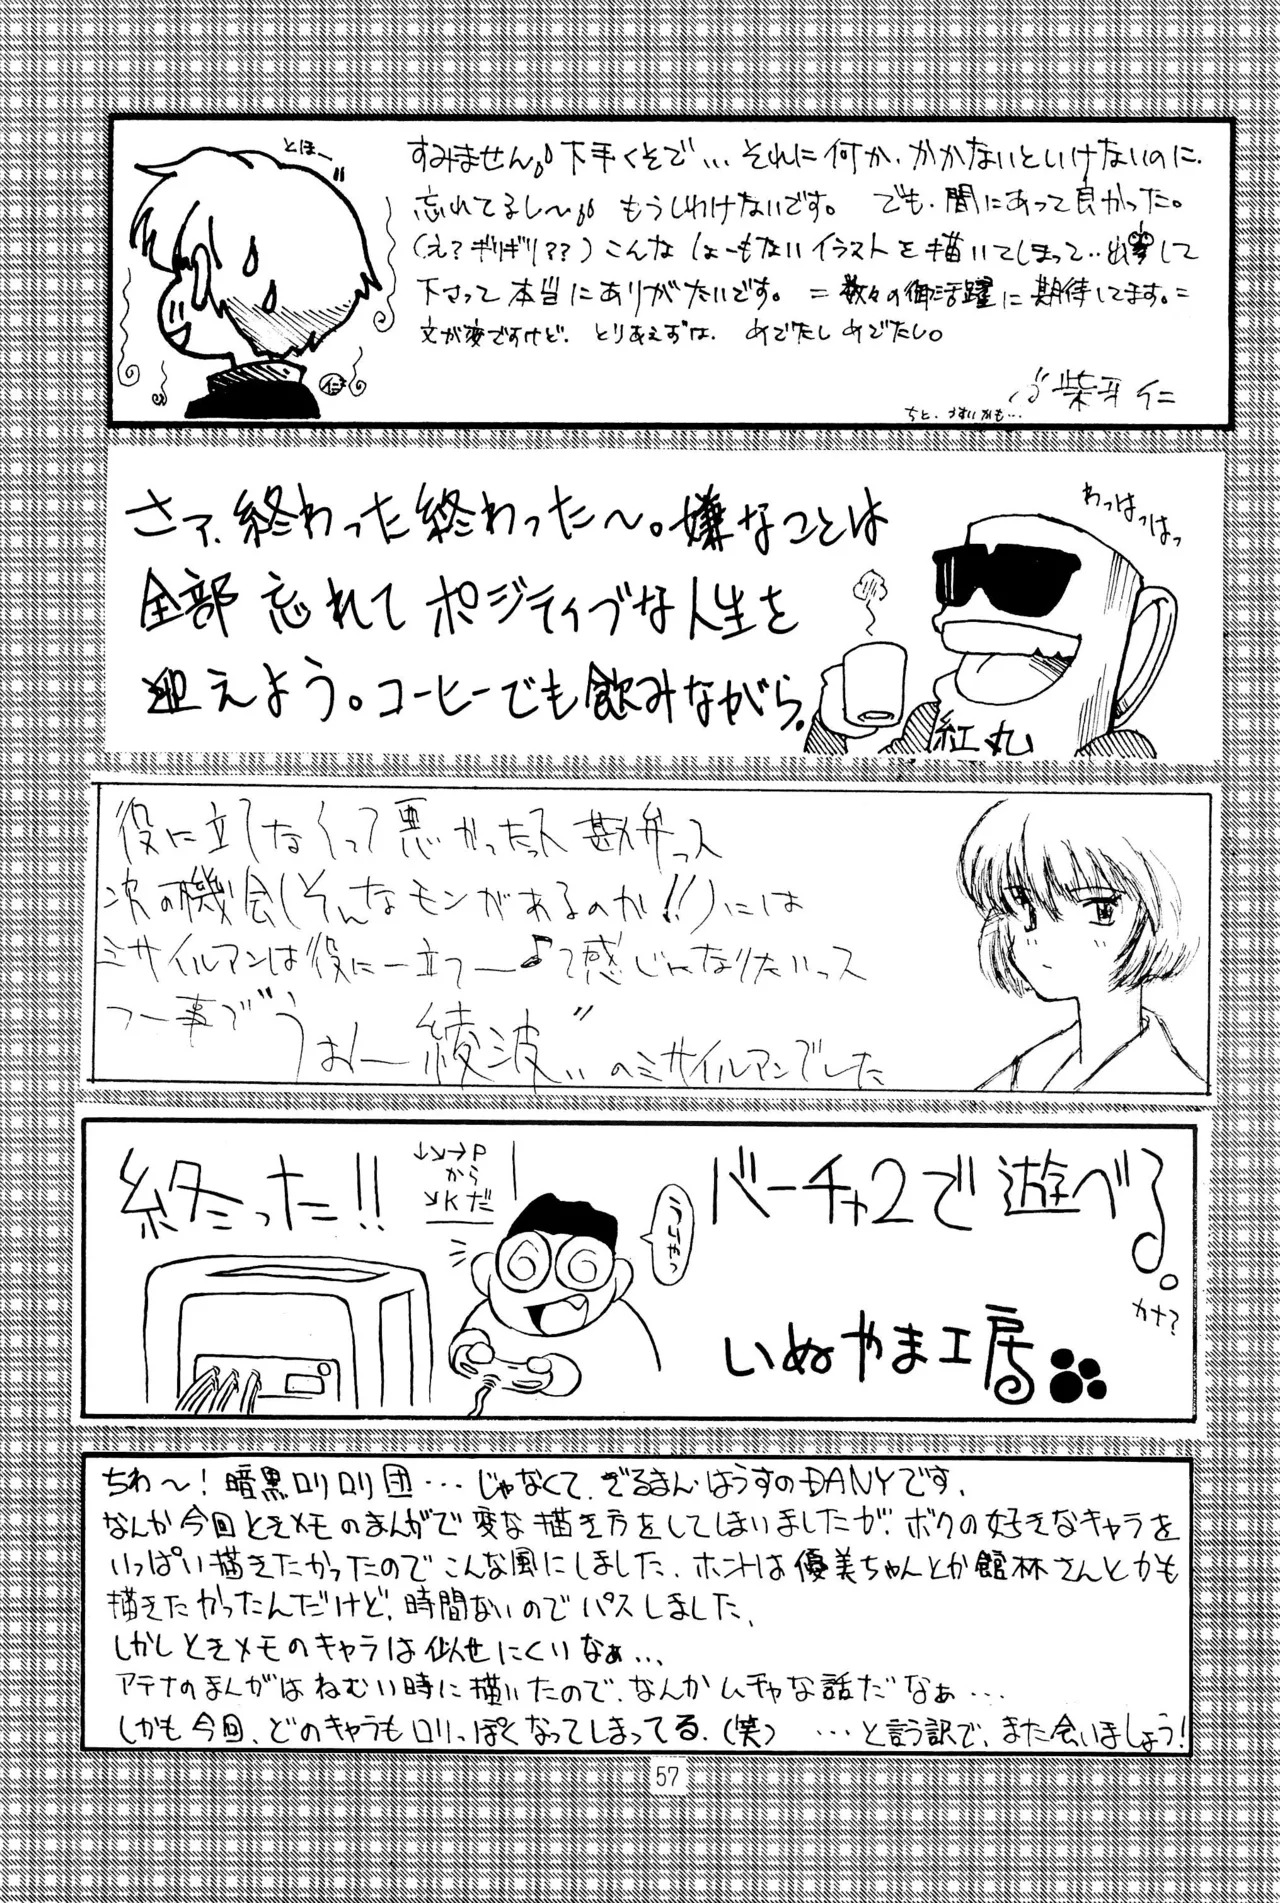 とほー
すみません下手くそで…それに何か、かかないといけないのに、
忘れてるし〜 もうしわけないです。 でも、間にあって良かった。
(え?ギリギリ??)こんなしょーもないイラストを描いてしまって‥出して
下さって本当にありがたいです。=数々の御活躍に期待してます。=
文が変ですけど、とりあえずは、めでたしめでたし。
柴牙 仁
ちと、うすいかも…
さァ、終わった終わった〜。嫌なことは
全部忘れてポジティブな人生を
迎えよう。コーヒーでも飲みながら。
わっはっはっはっ
紅丸
役に立てなくって悪かったっス勘弁っス
次の機会(そんなモンがあるのか!!)には
ミサイルマンは役に一立つ―♪って感じになりたいっス
つー事で"うぉー綾波"のミサイルマンでした
終った!!
↓↘→P
から
↘Kだ
うひゃっ
バーチャ2で遊べる。
カナ?
いぬやま工房
ちわ〜!暗黒ロリロリ団…じゃなくて、ざるまん・はうすのDANYです、
なんか今回ときメモのまんがで変な描き方をしてしまいましたが、ボクの好きなキャラを
いっぱい描きたかったのでこんな風にしました、ホントは優美ちゃんとか館林さんとかも
描きたかったんだけど、時間ないのでパスしました、
しかしときメモのキャラは似せにくいなぁ…、
アテナのまんがはねむい時に描いたので、なんかムチャな話だなぁ…
しかも今回、どのキャラもロリっぽくなってしまってる、(笑) …と言う訳で、また会いましょう!
57